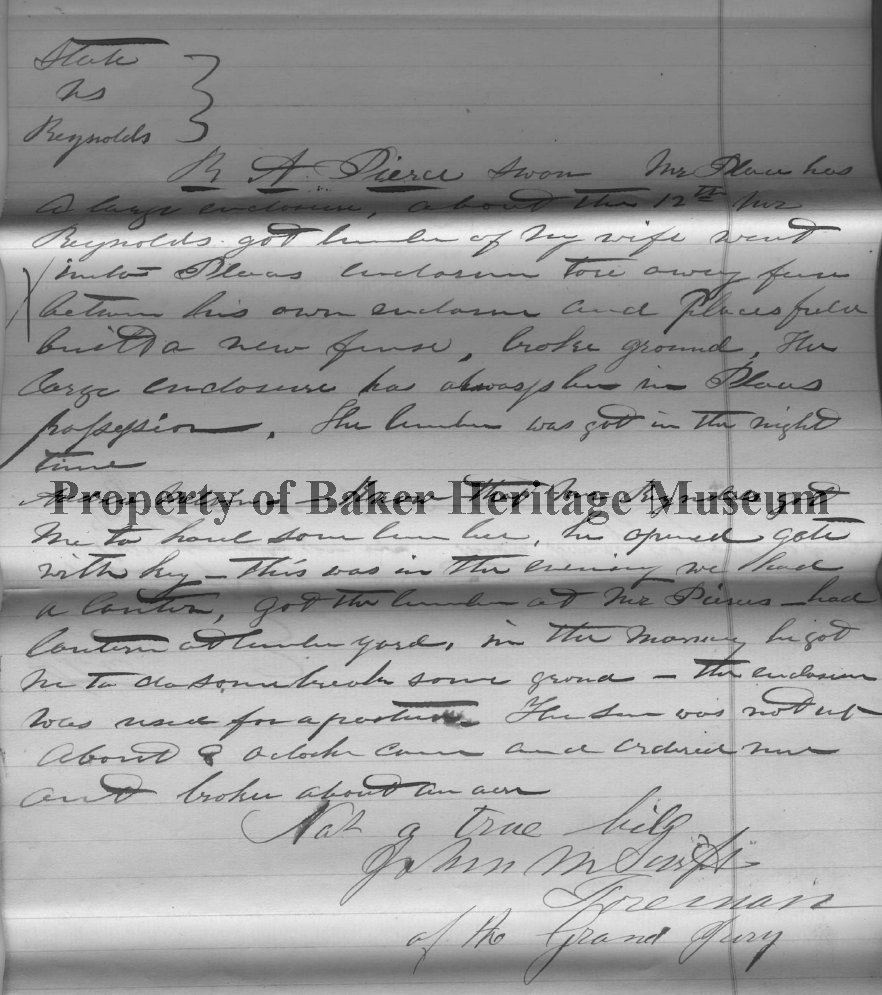 State
vs
Reynolds
R A Pierce sworn Mr Place has
a large enclosure, about the 12th Mr
Reynolds got lumber of my wife went
into Places enclosure tore away fence
between his own enclosure and Places field
built a new fense, broke ground, The
large enclosure has always been in Places
possession. The lumber was got in the night
time
Property of Baker Heritage Museum
me to haul some lumber, he opened gate
with key – this was in the evening we had
a lantern, got the lumber at Mr Pierces – had
lantern at lumber yard. in the morning he got
me to do some break some ground – the enclosure
was used for a pasture The sun was not up
About 8 oclock came and ordered me
out broke about an acre
Not a true bill
John M
Foreman
of the Grand Jury